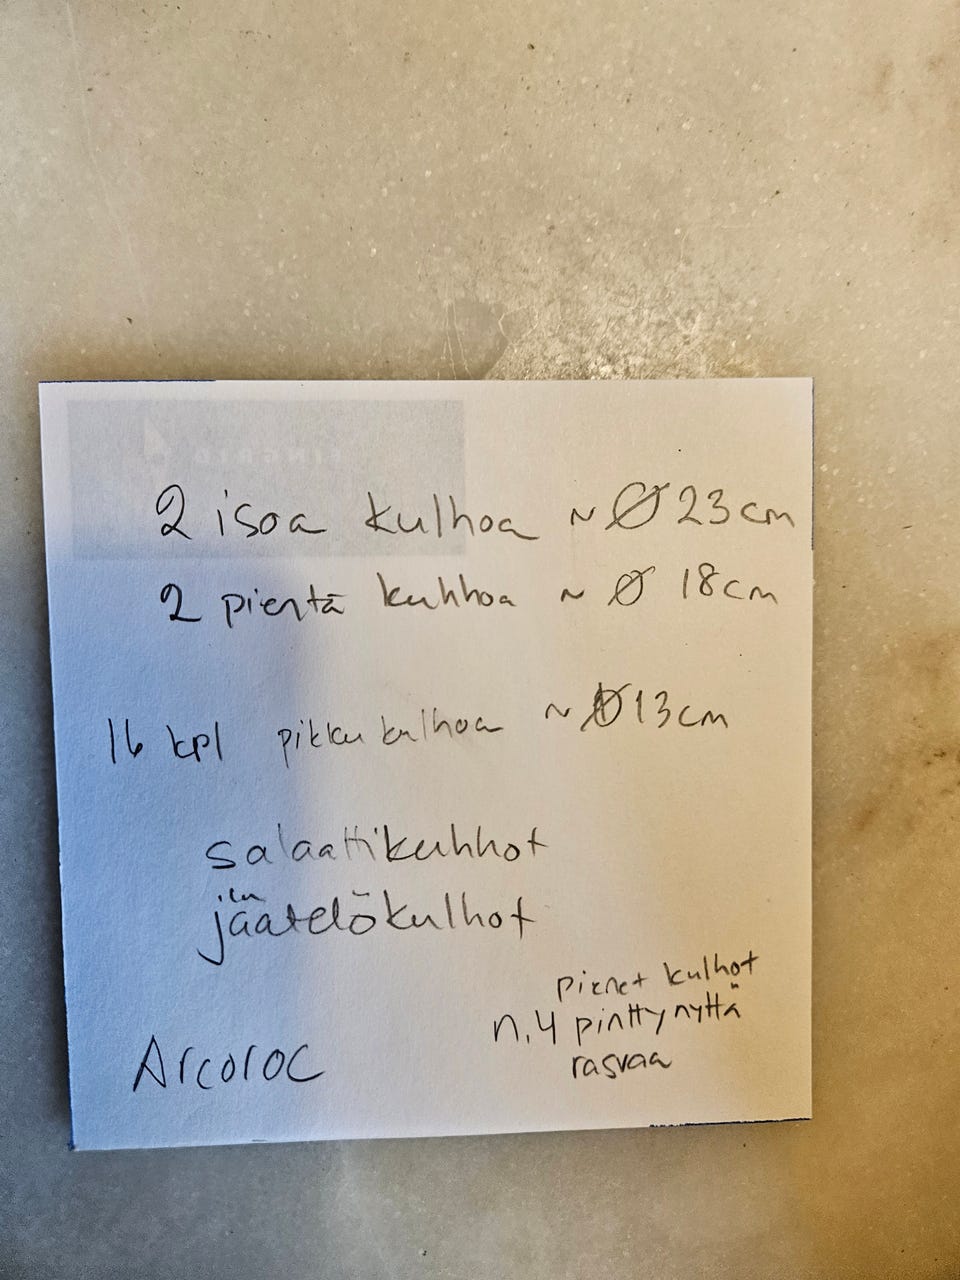 2 isoa kulhoa ~ Ø 23 cm
2 pientä kulhoa ~ Ø 18 cm
16 kpl pikku kulhoa ~ Ø 13 cm
salaattikulhot
jäätelökulhot
pienet kulhot
n. 4 pinttynyttä
rasvaa
Arcoroc